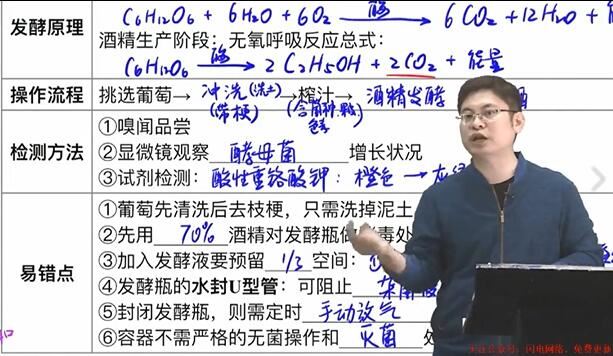 发酵原理
C₆H₁₂O₆ + 6H₂O + 6O₂ —酶→ 6CO₂ + 12H₂O +
酒精生产阶段：无氧呼吸反应总式：
C₆H₁₂O₆ —酶→ 2C₂H₅OH + 2CO₂ + 能量
操作流程 挑选葡萄→ 冲洗(洗土)→榨汁→ 酒精发酵 酒
(带梗)
检测方法
①嗅闻品尝
②显微镜观察 酵母菌 增长状况
③试剂检测：酸性重铬酸钾：橙色→灰绿
易错点
①葡萄先清洗后去枝梗，只需洗掉泥土
②先用 70% 酒精对发酵瓶做 毒处
③加入发酵液要预留 1/3 空间：①
④发酵瓶的水封U型管：可阻止
⑤封闭发酵瓶，则需定时 手动放气
⑥容器不需严格的无菌操作和 灭菌 处